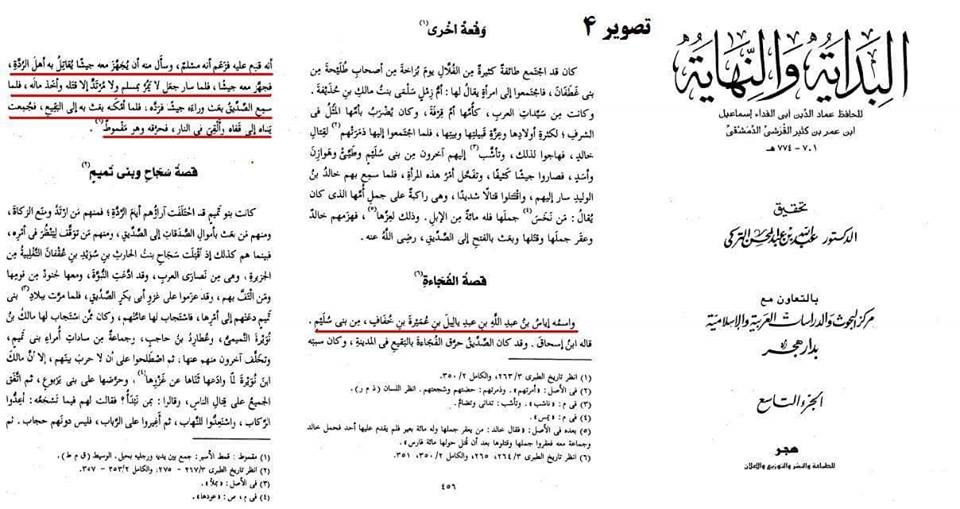 تصوير ۴
البداية والنهاية
للحافظ عماد الدين أبى الفداء إسماعيل
ابن عمر بن كثير القرشى الدمشقى
٧٠١ - ٧٧٤ هـ
تحقيق
الدكتور عبد الله بن عبد المحسن التركى
بالتعاون مع
مركز البحوث والدراسات العربية والإسلامية
بدار هجر
الجزء التاسع
هجر
للطباعة والنشر والتوزيع والإعلان
وَقْعةٌ أخرى(١)
كان قد اجتَمع طائفةٌ كثيرةٌ مِن الفُلَّالِ يومَ بُزاخةَ مِن أصحابِ طُلَيْحةَ مِن
بنى غَطَفانَ، فاجتمَعوا إلى امرأةٍ يقالُ لها: أمُّ زِمْلٍ سَلْمَى بنتُ مالكِ بنِ حُذَيفةَ.
وكانت مِن سَيِّداتِ العربِ، كأُمِّها أمِّ قِرْفةَ، وكان يُضْرَبُ بأمِّها المثَلُ فى
الشرفِ؛ لكثرةِ أولادِها وعِزَّةِ قبيلتِها وبيتِها، فلما اجتمَعوا إليها ذمَرَتْهم(٢) لقِتالِ
خالدٍ، فهاجوا لذلك، وتأشَّب(٣) إليهم آخرون مِن بنى سُلَيْمٍ وطَيِّئٍ وهَوازِنَ
وأسَدٍ، فصاروا جيشًا كثيفًا، وتفَحَّل أمرُ هذه المرأةِ، فلما سمِع بهم خالدُ بنُ
الوليدِ سار إليهم، واقتتَلوا قتالًا شديدًا، وهى راكبةٌ على جملِ أُمِّها الذى كان
يُقالُ: مَن نَخَسَ(٤) جملَها فله مائةٌ مِن الإبلِ. وذلك لعِزِّها(٥)، فهزَمهم خالدٌ
وعقَر جملَها وقتَلها وبعَث بالفتحِ إلى الصديقِ، رضِى اللَّهُ عنه.
قصةُ الفُجاءةِ(٦)
واسمُه إياسُ بنُ عبدِ اللَّهِ بنِ عبدِ يالِيلَ بنِ عُمَيْرةَ بنِ خُفافٍ، مِن بنى سُلَيْمٍ.
قاله ابنُ إسحاقَ. وقد كان الصِّدِّيقُ حرَّق الفُجاءةَ بالبَقيعِ فى المدينةِ، وكان سببُه
(١) انظر تاريخ الطبرى ٢٦٣/٣، والكامل ٣٥٠/٢.
(٢) فى الأصل: «أمرتهم». وذمرتهم: حضتهم وشجعتهم. انظر اللسان (ذ م ر).
(٣) فى م: «ناشب». وتأشب: تدانى وتضام.
(٤) فى م: «يمس».
(٥) بعده فى الأصل: «فقال خالد: من يعقر جملها وله مائة بعير فلم يقدم عليها أحد فحمل خالد
وجماعة معه فعقروا جملها وقتلوها بعد أن قتل حولها مائة فارس».
(٦) انظر تاريخ الطبرى ٢٦٤/٣، ٢٦٥، والكامل ٣٥٠/٢، ٣٥١.
٤٥٦
أنه قدِم عليه فزعَم أنه مسلمٌ، وسأَل منه أن يُجَهِّزَ معه جيشًا يُقاتِلُ به أهلَ الرِّدَّةِ،
فجهَّز معه جيشًا، فلما سار جعَل لا يَمُرُّ بمسلمٍ ولا مُرْتَدٍّ إلا قتَله وأخَذ مالَه، فلما
سمِع الصِّدِّيقُ بعَث وراءَه جيشًا فرَدَّه، فلما أمْكَنه بعَث به إلى البَقيعِ، فجُمِعت
يَداه إلى قَفاه وأُلْقِىَ فى النارِ، فحرَّقه وهو مَقْموطٌ(١).
قصةُ سَجَاحِ وبنى تَميمٍ(٢)
كانت بنو تَميمٍ قد اختلَفت آراؤُهم أيامَ الرِّدَّةِ؛ فمنهم مَن ارْتَدَّ ومنَع الزكاةَ،
ومنهم مَن بعَث بأموالِ الصَّدَقاتِ إلى الصِّدِّيقِ، ومنهم مَن توَقَّف لِيَنْظُرَ فى أمْرِه،
فبينما هم كذلك إذ أقْبَلَت سَجَاحِ بنتُ الحارثِ بنِ سُوَيْدِ بنِ عُقْفانَ التَّغْلِبِيَّةُ مِن
الجزيرةِ، وهى مِن نصارَى العربِ، وقد ادَّعت النُّبُوَّةَ، ومعها جنودٌ مِن قومِها
ومَن التَفَّ بهم، وقد عزَموا على غزوِ أبى بكرٍ الصِّدِّيقِ، فلما مرَّت ببلادِ(٣) بنى
تَميمٍ دعَتْهم إلى أمْرِها، فاستَجاب لها عامَّتُهم، وكان ممَّن استَجاب لها مالكُ بنُ
نُوَيْرةَ التَّميمىُّ، وعُطارِدُ بنُ حاجبٍ، وجماعةٌ مِن ساداتِ أُمراءِ بنى تَميمٍ،
وتخَلَّف آخرون منهم عنها، ثم اصْطَلَحوا على أن لا حربَ بينَهم، إلا أنَّ مالكَ
ابنَ نُوَيْرةَ لمَّا وادَعها ثَنَاها عن غَزْوِها(٤)، وحرَّضها على بنى يَرْبوعٍ، ثم اتَّفَق
الجميعُ على قِتالِ الناسِ، وقالوا: بمَن نَبْدَأُ؟ فقالت لهم فيما تَسْجَعُه: أعِدُّوا
الرِّكاب، واستَعِدُّوا للنِّهاب، ثم أَغِيروا على الرِّباب، فليس دونَهم حجاب. ثم
(١) مقموط: قمط الأسير: جمع بين يديه ورجليه بحبل. الوسيط (ق م ط).
(٢) انظر تاريخ الطبرى ٢٦٧/٣ - ٢٧٥، والكامل ٣٥٣/٢ - ٣٥٧.
(٣) فى الأصل: «بملأ».
(٤) فى م، ص: «عودها».